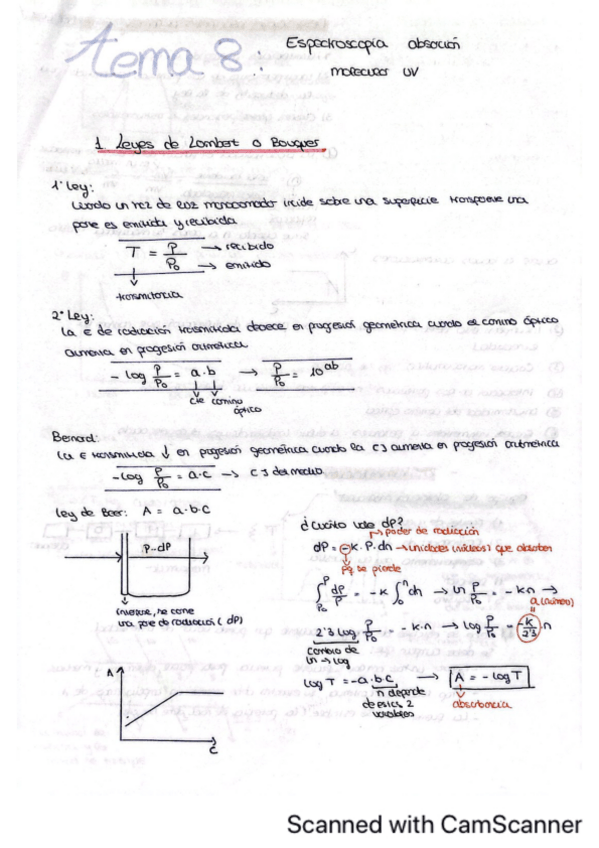 tema 8:
Espectroscopía absorción
molecular UV
1. Leyes de Lambert o Bouguer
1ª Ley:
Cuando un rez de luz monocromador incide sobre una superficie transparente una
parte es emitida y recibida
T = P/P₀ → recibido
→ emitido
transmitancia
2ª Ley:
La E de radiación transmitida decece en progesión geométrica cuando el camino óptico
aumenta en progesión aritmética
- log P/P₀ = a·b → P/P₀ = 10^ab
cte camino
óptico
Bernard:
La E transmitida ↓ en pogesión geométrica cuando la [c] aumenta en progesión aritmética
-log P/P₀ = a·c → [c] del medio
Ley de Beer: A = a·b·c
P-dP
invierte, se come
una parte de radiación (dP)
A
C
¿Cuánto vale dP?
→ poder de radiación
dP = -K·P·dn → unidades (núcleos) que absorben
pq se pierde
∫ P₀ P dP/P = -K ∫ 0 n dn → ln P/P₀ = -Kn →
a (número)
2'3 log P/P₀ = -K·n → log P/P₀ = -K/2'3 n
cambio de
ln → log
log T = -a·b·c → A = - log T
n depende
de estas 2
variables
absorbancia
Scanned with CamScanner